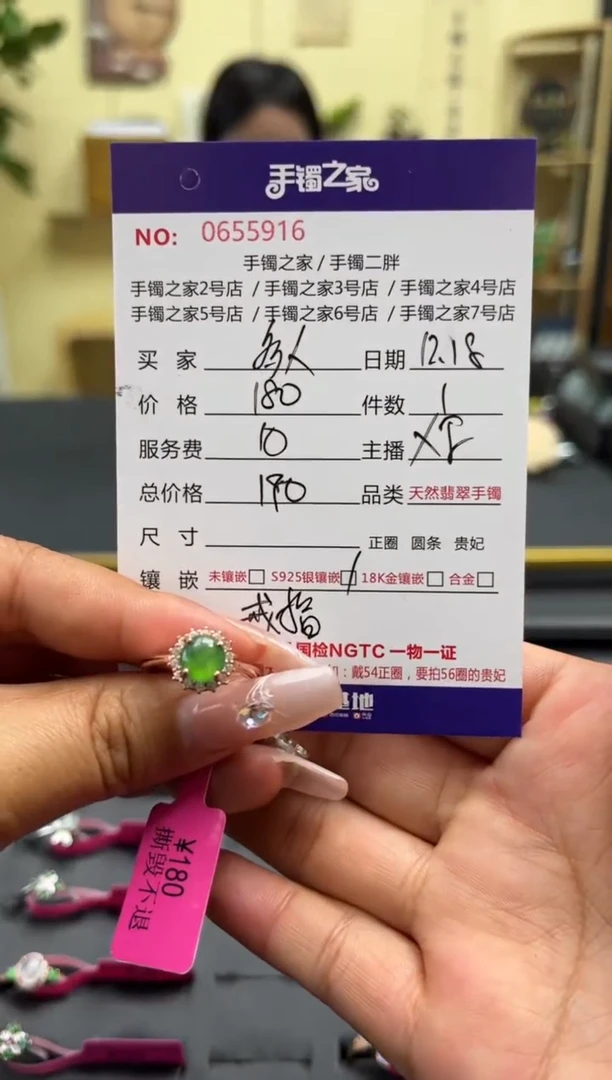 手镯之家
NO: 0655916
手镯之家 / 手镯二胖
手镯之家2号店 / 手镯之家3号店 / 手镯之家4号店
手镯之家5号店 / 手镯之家6号店 / 手镯之家7号店
买 家 日期 12.18
价 格 180 件数 1
服务费 10 主播
总价格 190 品类 天然翡翠手镯
尺 寸 正圈 圆条 贵妃
镶 嵌 未镶嵌 S925银镶嵌 18K金镶嵌 合金
戒指
国检NGTC 一物一证
：戴54正圈，要拍56圈的贵妃
基地
¥180
撕毁不退